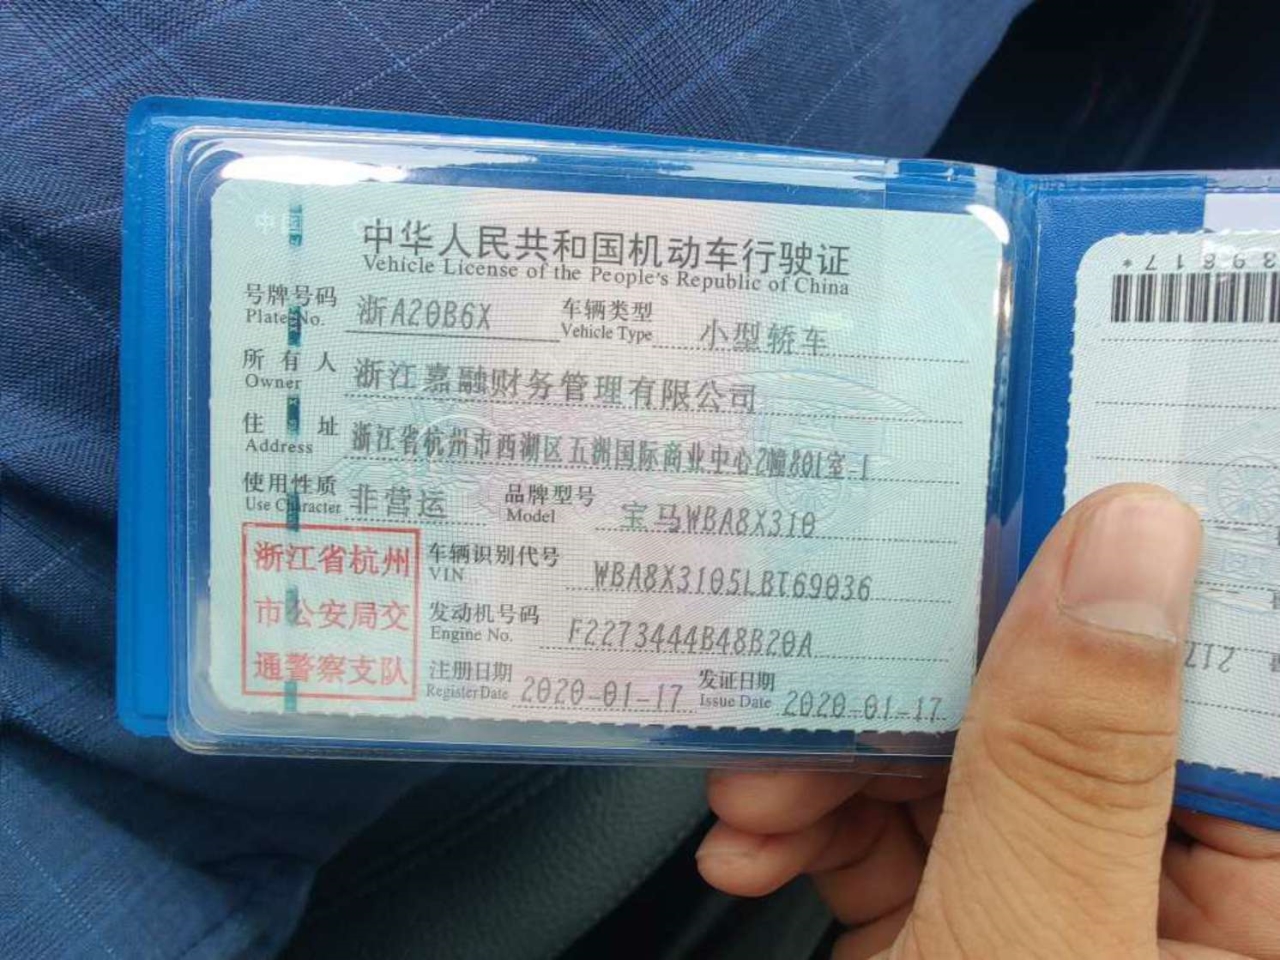 中华人民共和国机动车行驶证
Vehicle License of the People's Republic of China
号牌号码 浙A20B6X 车辆类型 小型轿车
Plate No. Vehicle Type
所有人 浙江嘉融财务管理有限公司
Owner
住址 浙江省杭州市西湖区五洲国际商业中心2幢801室-1
Address
使用性质 非营运 品牌型号 宝马WBA8X310
Use Character Model
浙江省杭州
市公安局交
通警察支队
车辆识别代号 WBA8X3105LBT69036
VIN
发动机号码 F2273444B48B20A
Engine No.
注册日期 2020-01-17 发证日期 2020-01-17
Register Date Issue Date